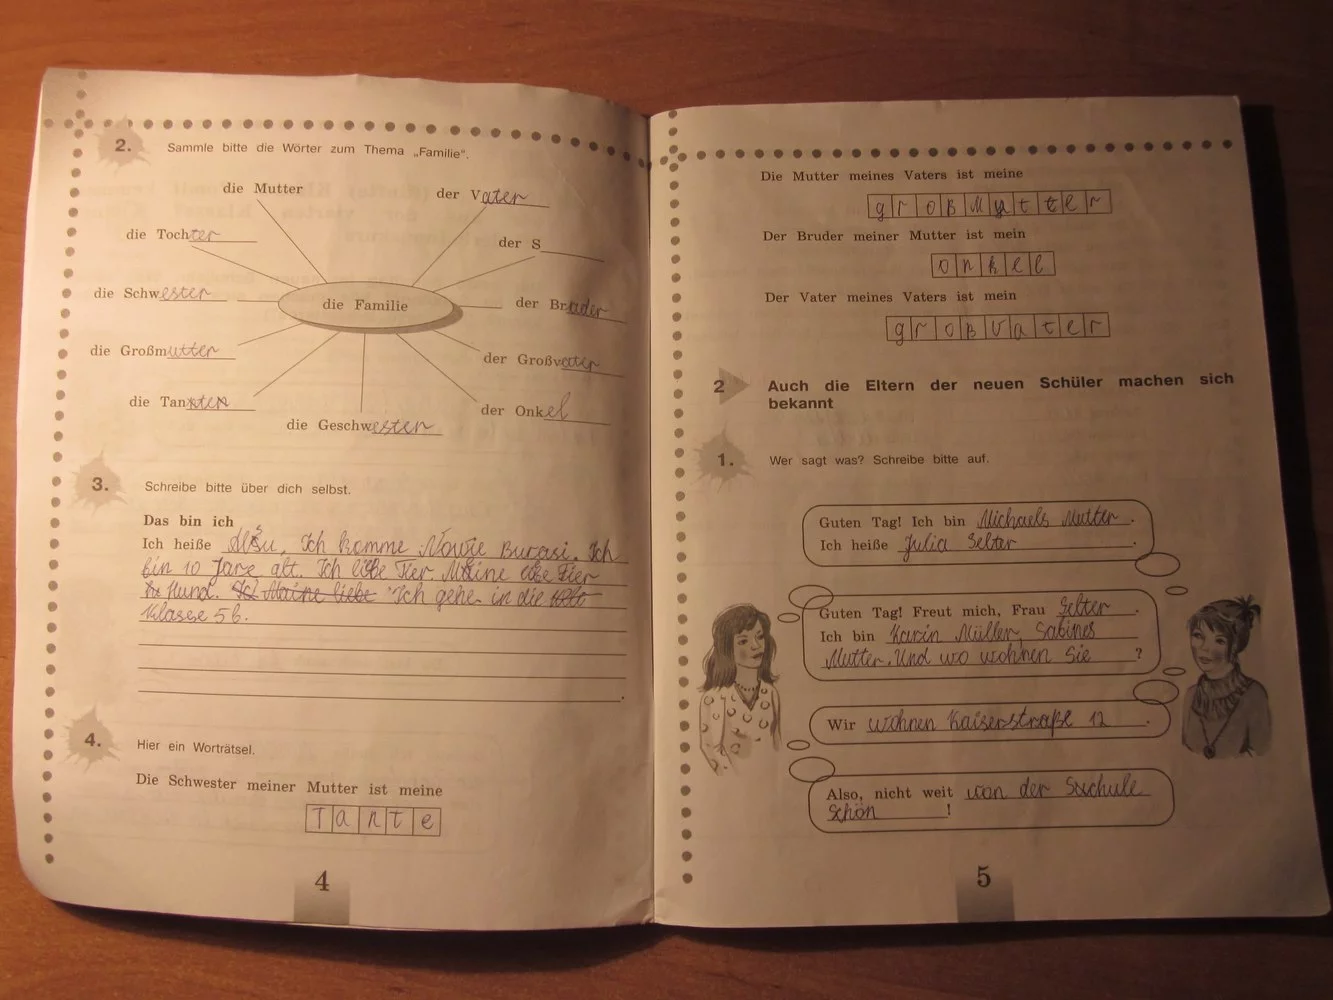 2. Sammle bitte die Wörter zum Thema „Familie“.
die Mutter
der Vater
die Tochter
der S
die Schwester
die Familie
der Bruder
die Großmutter
der Großvater
die Tanten
der Onkel
die Geschwester
3. Schreibe bitte über dich selbst.
Das bin ich
Ich heiße Ich komme Ich
bin 10 Jare alt. Ich liebe Tier. Meine Tier
Hund. Ich Maine liebe Ich gehe in die
Klasse 5b.
4. Hier ein Worträtsel.
Die Schwester meiner Mutter ist meine
Tante
4
Die Mutter meines Vaters ist meine
großMutter
Der Bruder meiner Mutter ist mein
onkel
Der Vater meines Vaters ist mein
großvater
2 Auch die Eltern der neuen Schüler machen sich
bekannt
1. Wer sagt was? Schreibe bitte auf.
Guten Tag! Ich bin Michaels Mutter.
Ich heiße Julia Selter.
Guten Tag! Freut mich, Frau Selter.
Ich bin Karin Müller, Sabines
Mutter. Und wo wohnen Sie ?
Wir wohnen Kaiserstraße 12.
Also, nicht weit von der
Schön !
5